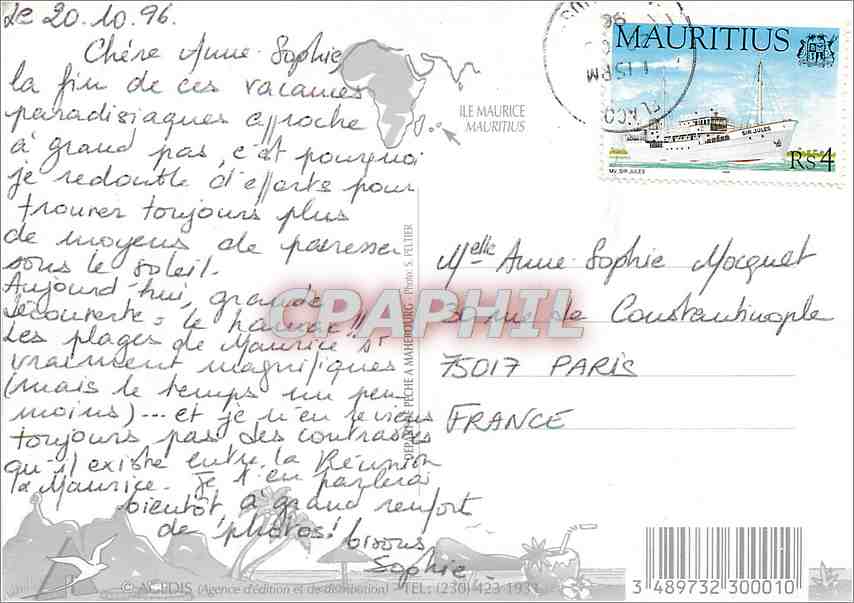 Le 20.10.96.
Chère Anne-Sophie
la fin de ces vacances
paradisiaques approche
à grand pas, c'est pourquoi
je redouble d'efforts pour
trouver toujours plus
de moyens de paresser
sous le soleil.
Aujourd'hui, grande
découverte: le hamac!!
Les plages de Maurice st
vraiment magnifiques
(mais le temps un peu
moins)... et je n'en reviens
toujours pas des contrastes
qu'il existe entre la Réunion
& Maurice. Je t'en parlerai
bientôt à grand renfort
de photos! bisous
Sophie
ILE MAURICE
MAURITIUS
MAURITIUS
SIR JULES
MV. SIR JULES
RS4
96
1.15PM
DEPART DE PECHE A MAHEBOURG - Photo: S. PELTIER
CPAPHIL
Melle Anne-Sophie Mocquet
30 rue de Constantinople
75017 PARIS
FRANCE
(Agence d'édition et de distribution) - TEL: (230) 423 1933
3 489732 300010